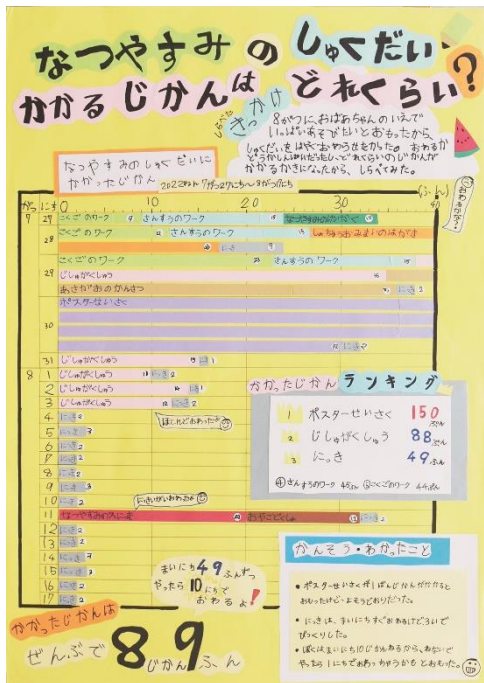 なつやすみ の しゅくだい、
かかる じかんは どれくらい?
しらべた きっかけ
8がつに、おばあちゃんのいえで
いっぱいあそびたいとおもったから、
しゅくだいをはやくおわらせたかった。おわるか
どうかしんぱいだったし、どれくらいのじかんが
かかるかきになったから、しらべてみた。
なつやすみのしゅくだいに
かかったじかん
2022ねん 7がつ27にち~8がつ
がつ にち 0 10 20 30 40 (ふん)
おわるかな?
7 27 こくごのワーク さんすうのワーク
28 こくごのワーク さんすうのワーク
にっき
29 こくごのワーク さんすうのワーク
じしゅがくしゅう
あさがおのかんさつ にっき 2
30 ポスターせいさく
にっき 2
31 じしゅがくしゅう にっき 1
8 1 じしゅがくしゅう にっき 2
2 じしゅがくしゅう にっき 1
3 じしゅがくしゅう にっき 2
4 にっき 2
ほとんどおわったよ
5 にっき 3
6 にっき 2
7 にっき 2
8 にっき 2
9 にっき 3
10 にっき 2
11 おやこどくしょ にっき 2
12 にっき 2
13 にっき 2
14 にっき 3
15 にっき 3
16 にっき 2
17 にっき 2
かかったじかん ランキング
1 ポスターせいさく 150 ぷん
2 じしゅがくしゅう 88 ぷん
3 にっき 49 ふん
④さんすうのワーク 45ふん ⑤こくごのワーク 44ぷん
まいにち49ふんずつ
やったら10にちで
おわるよ!
かんそう・わかったこと
• ポスターせいさくが1ばんじかんがかかると
おもったけど、よそうどおりだった。
• にっきは、まいにちすぐおわるけど3いで
びっくりした。
• ぼくはまいにち10じかんねるから、ねないで
やったら1にちでおわっちゃうかもとおもった。
かかったじかんは
ぜんぶで 8じかん 9ふん